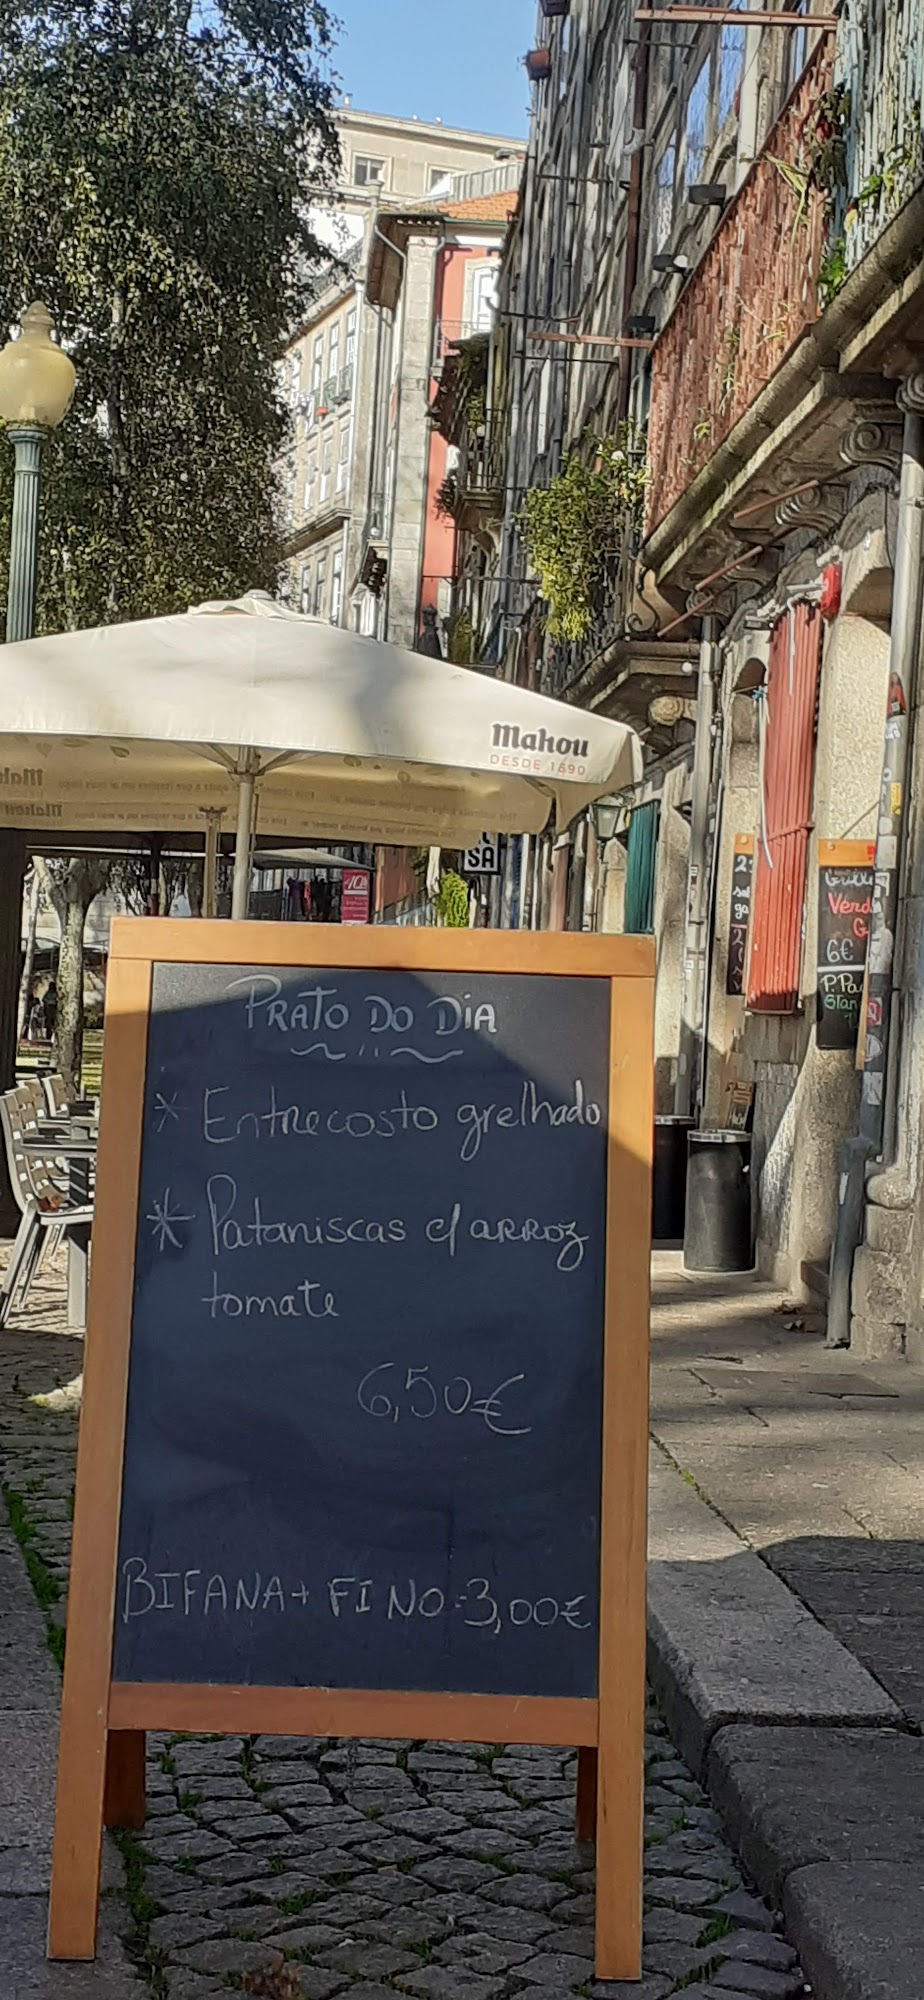 Mahou
DESDE 1890
SA
PRATO DO DIA
* Entrecosto grelhado
* Pataniscas c/ arroz
tomate
6,50€
BIFANA + FINO = 3,00€
Verd
G
6€
P. Pa